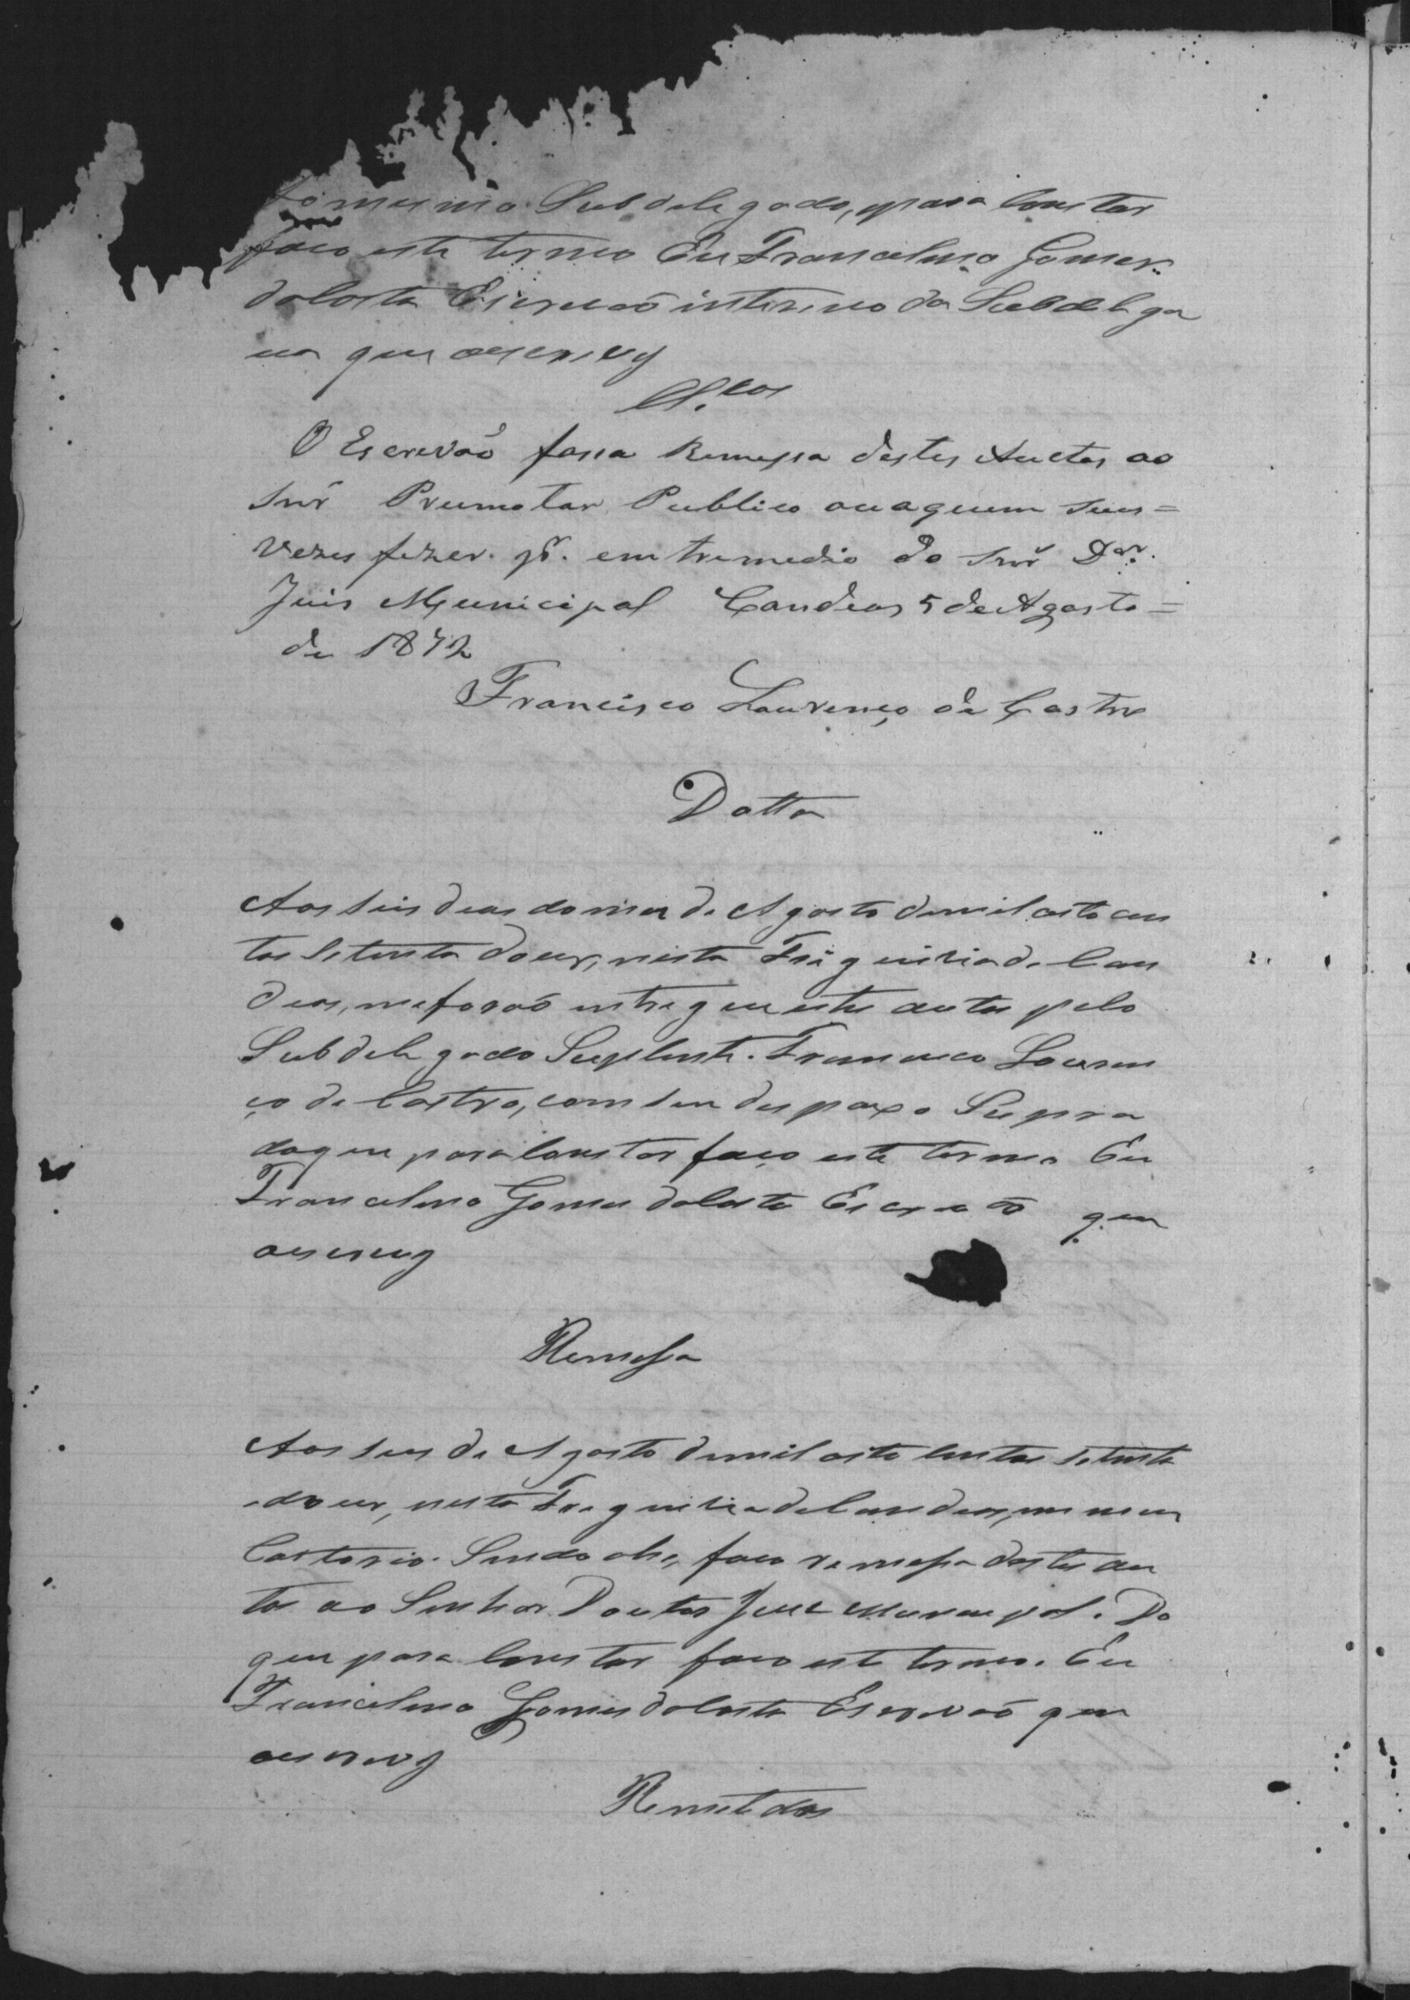 mesmo Subdelegado, para Constar
faco este termo Eu Francelino Gomes
da Costa Escrivaõ interino da Subdelega
cia que escrevy
Cl.sos
O Escrivaõ fassa Remessa destes Auctos ao
Snr̃ Prumotar Publico ou a quem suas =
vezes fizer. pr̃. emtremedio do Snr̃ Dor.
Juis Municipal Candeas 5 de Agosto =
de 1872
Francisco Lourenço de Castro
Datta
Aos seis dias do mes de Agosto de mil oito cen
tos setenta dous, nesta Freguizia de Can
deas, me foraõ entregues estes autos pelo
Subdelegado Suplente. Francisco Louren
ço de Castro, com seu despaxo Supra
do que para Constar faço este termo Eu
Francelino Gomes da Costa Escrivaõ que
escrevy
Remessa
Aos seis de Agosto de mil oito Centos setenta
e dous, nesta Freguizia de Candeas, em meu
Cartorio. Sendo ahi, faco remessa destes au
tos ao Senhor Doutor Juiz Municipal. Do
que para Constar faco este termo. Eu
Francelino Gomes da Costa Escrivaõ que
escrevy
Remetidos